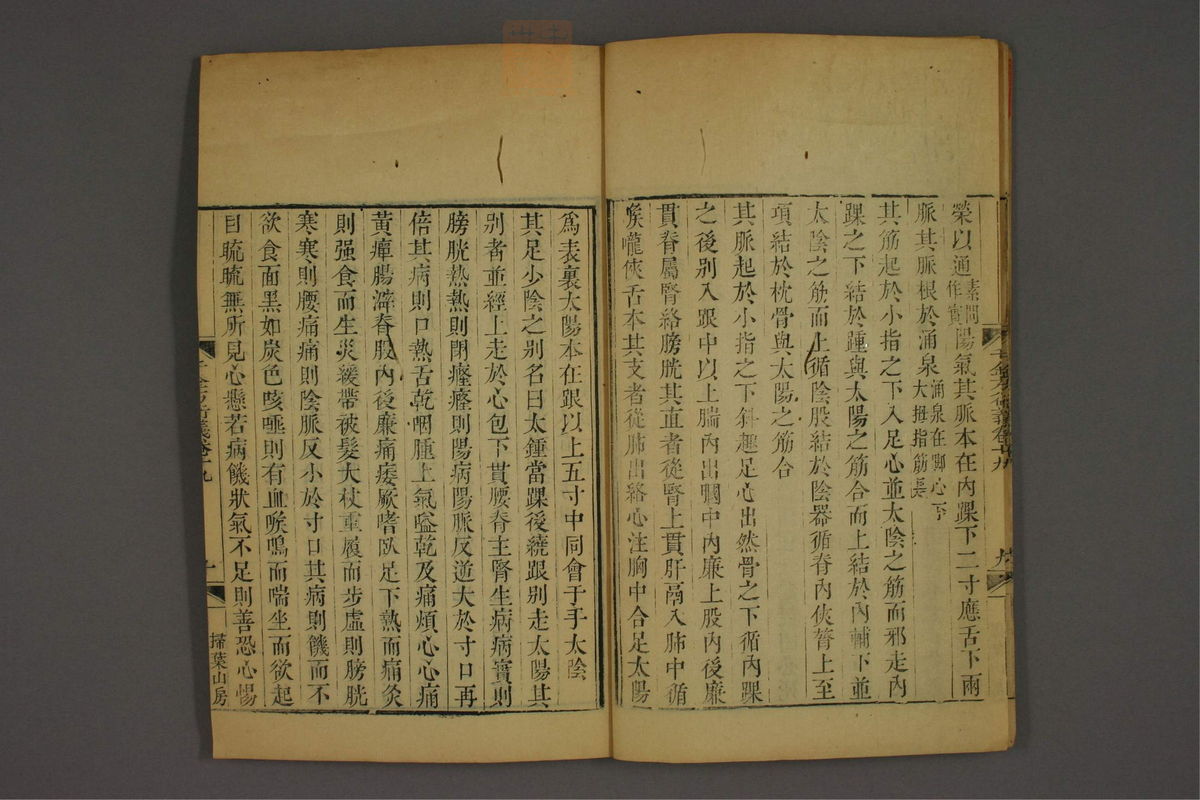 榮以通素問作實陽氣其脈本在內踝下二寸應舌下兩
脈其脈根於涌泉涌泉在脚心下大拇指筋是
其筋起於小指之下入足心並太陰之筋而邪走內
踝之下結於踵與太陽之筋合而上結於內輔下並
太陰之筋而上循陰股結於陰器循脊內俠膂上至
項結於枕骨與太陽之筋合
其脈起於小指之下斜趣足心出然骨之下循內踝
之後別入跟中以上腨內出膕中內廉上股內後廉
貫脊屬腎絡膀胱其直者從腎上貫肝鬲入肺中循
喉嚨俠舌本其支者從肺出絡心注胸中合足太陽
為表裏太陽本在跟以上五寸中同會于手太陰
其足少陰之別名曰太鍾當踝後繞跟別走太陽其
別者並經上走於心包下貫腰脊主腎生病病實則
膀胱熱熱則閉癃癃則陽病陽脈反逆大於寸口再
倍其病則口熱舌乾咽腫上氣嗌乾及痛煩心心痛
黃癉腸澼脊股內後廉痛痿厥嗜臥足下熱而痛灸
則强食而生災緩帶被髮大杖重履而步虛則膀胱
寒寒則腰痛痛則陰脈反小於寸口其病則饑而不
欲食面黑如炭色咳唾則有血喉鳴而喘坐而欲起
目䀮䀮無所見心懸若病饑狀氣不足則善恐心惕
掃葉山房